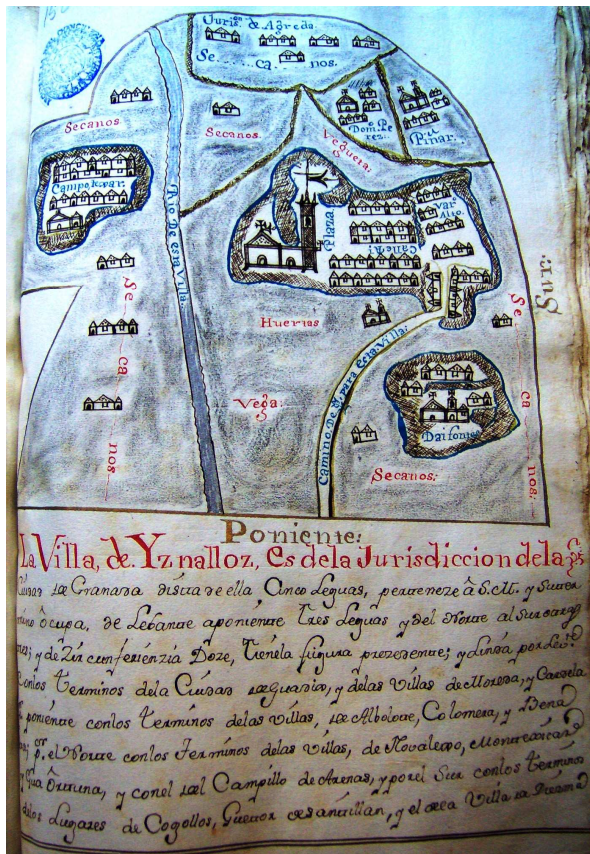 Juris.on de Agreda.
Se ca nos.
Secanos
Secanos.
Dom.o Pe
rez.
Pinar.
Campotexar.
Rio de esta Villa:
Plaza.
Calleth:
Varo
Alto.
Sur:
Huertas
Se ca nos
Vega:
Se ca nos:
Camino de Gr.a para esta Villa:
Daifontes
Secanos:
Poniente:
La Villa, de Yznalloz, Es dela Jurisdiccion dela
Ciudad de Granada dista de ella Cinco Leguas, perteneze â S.M. y Su ter
mino ôcupa, de Lebante aponiente Tres Leguas y del Norte al Sur
y de Zircunferienzia Doze, Tienela figura prezedente; y Linda por
conlos Terminos dela Ciudad de Guadix, y delas Villas de Moreda, y
poniente conlos Terminos delas Villas, de Albolote, Colomera, y Bena
p.r el Norte conlos Terminos delas Villas, de Novalexo,
y Gua Ôrtuna, y conel del Campillo de Arenas, y por el Sur conlos Termino
delos Lugares de Cogollos, y el dela Villa de